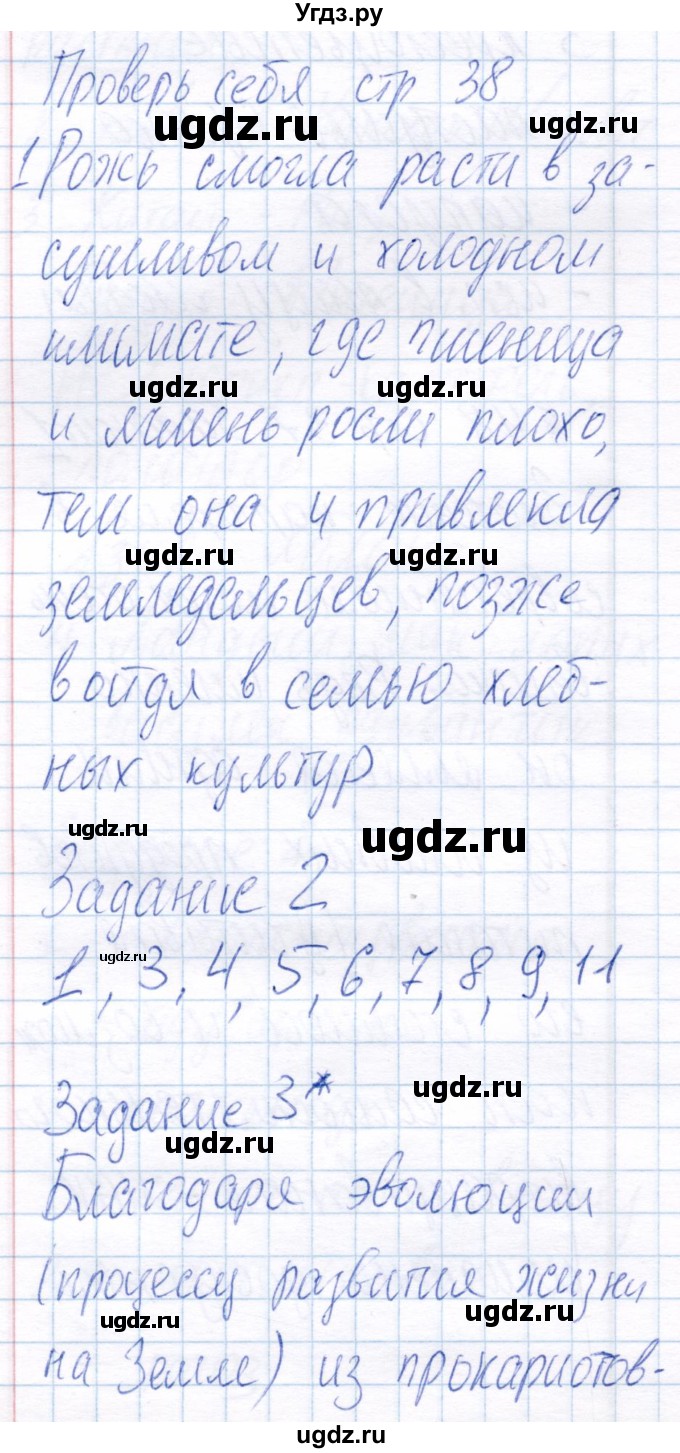 Угдз.ру
Проверь себя стр 38
ugdz.ru ugdz.ru
1 Рожь смогла расти в за-
сушливом и холодном
климате, где пшеница
ugdz.ru ugdz.ru
и ячмень росли плохо,
тем она и привлекла
ugdz.ru ugdz.ru
земледельцев, позже
войдя в семью хлеб-
ных культур
ugdz.ru ugdz.ru
Задание 2
ugdz.ru
1, 3, 4, 5, 6, 7, 8, 9, 11
Задание 3*
ugdz.ru
ugdz.ru
Благодаря эволюции
(процессу развития жизни
ugdz.ru ugdz.ru
на Земле) из прокариотов-
ugdz.ru